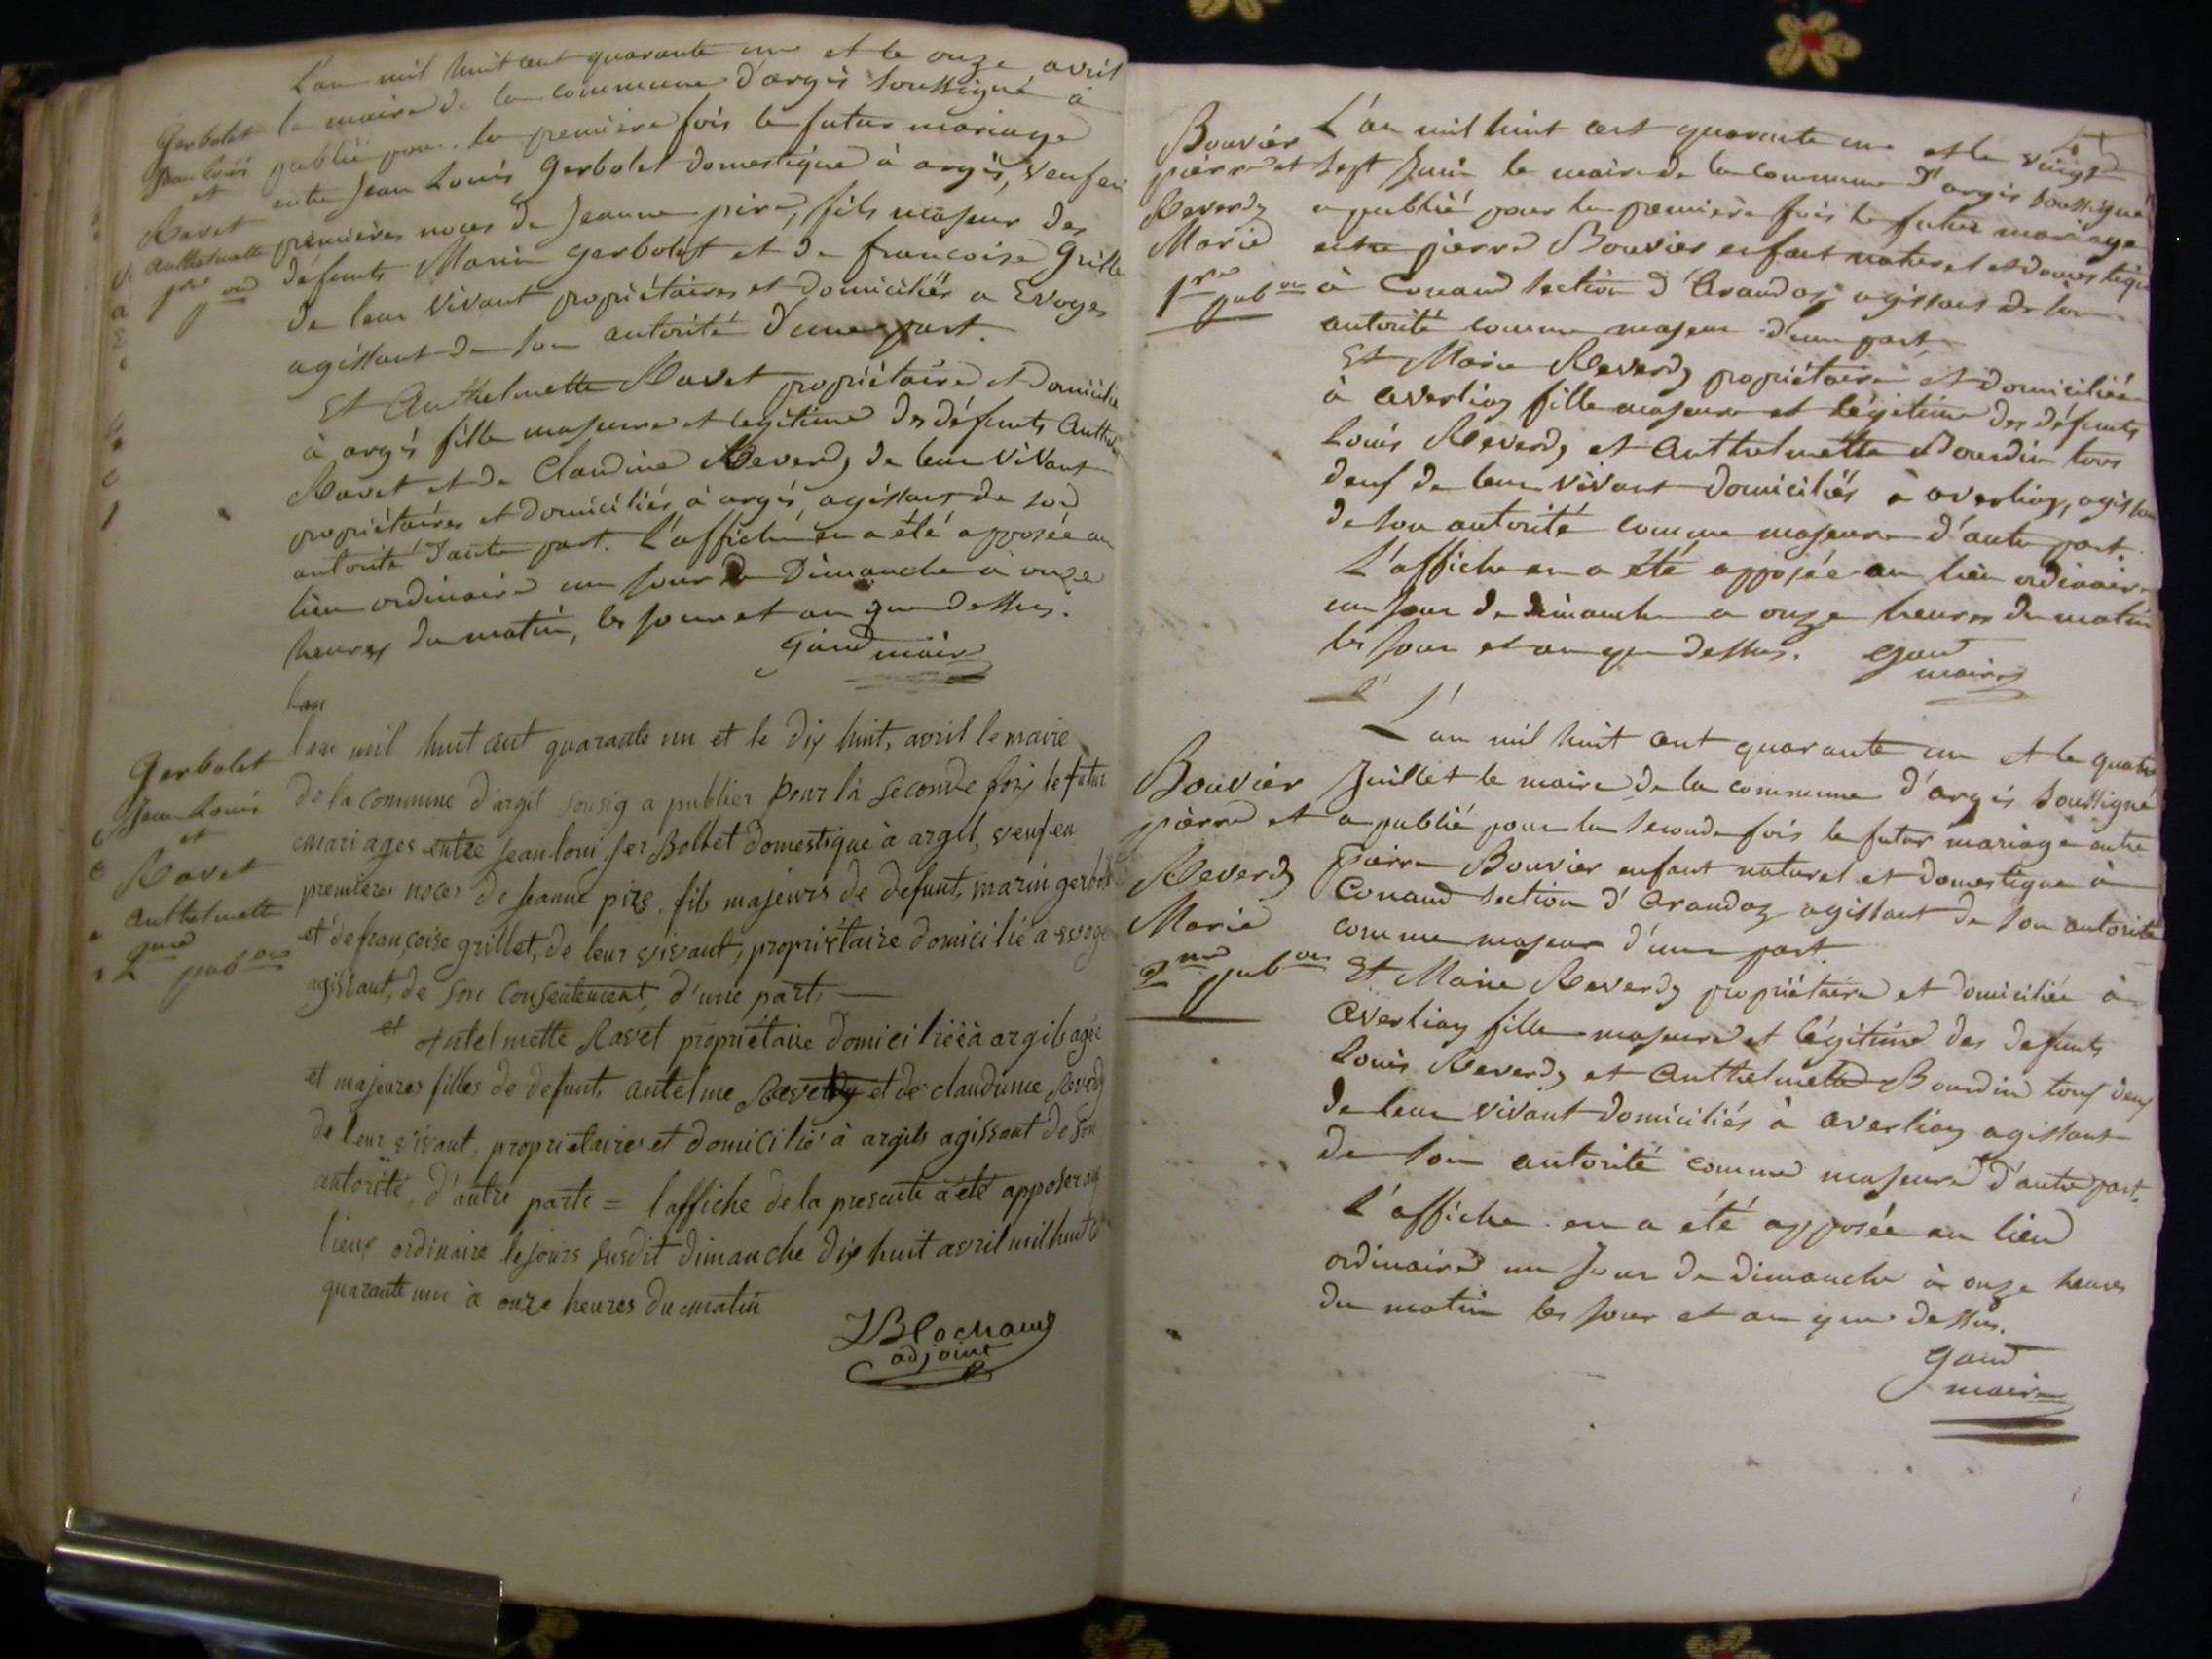 L'an mil huit cent quarante un et le onze avril
le maire de la commune d'argis soussigné a
publié pour la première fois le futur mariage
entre Jean Louis Gerbolet domestique à argis, veuf en
premières noces de Jeanne pire, fils majeur des
défunts Marin gerbolet et de francoise Grille
de leur vivant propriétaires et domiciliés a Evoges
agissant de son autorité d'une part.
Et Anthelmette Ravet propriétaire et domicilié
à argis fille majeure et legitime des défunts Anthel
Ravet et de Claudine Reverdy de leur vivant
propriétaires et domiciliés à argis, agissant de son
autorité d'autre part. L'affiche en a été apposée au
lieu ordinaire un jour de Dimanche à onze
heures du matin, les jour et an que dessus.
Gaud maire
Gerbolet
Jean Louis
et
Ravet
Anthelmette
1re pub on
Lan
lan mil huit cent quarante un et le dix huit, avril le maire
de la commune d'argil sousig a publier pour la seconde fois le futur
mariages entre jean loui jer Bollet domestique à argil, veuf en
premieres noces de jeanne pire, fils majeurs de defunt, marin gerbol
et de françoise grillet, de leur vivant, propriétaire domicilié a evoge
agissant, de son consentement, d'une part,
et Antelmette Ravet propriétaire domiciliéé à argils agée
et majeures filles de defunt, antelme Reverdy et de claudinne Reverd
de leur vivant, proprietaires et domicilié à argils agissant de son
autorité, d'autre parte = l'affiche de la presente a été apposer au
lieux ordinaire le jours susdit dimanche dix huit avril mil huit c
quarante un à onze heures du matin
JBlochand
adjoint
Gerbolet
Jean Louis
et
Ravet
Anthelmette
2me pub on
L'an mil huit cent quarante un et le vingt
sept Juin le maire de la commune d'argis soussigné
a publié pour la première fois le futur mariage
entre pierre Bouvier enfant naturel et domestique
à Conand section d'Arandas agissant de son
autorité comme majeur d'une part
Et Marie Reverdy propriétaire et domiciliée
à averliaz fille majeure et légitime des défunts
Louis Reverdy et Anthelmette Bourdin tous
deux de leur vivant domiciliés à averliaz, agissant
de son autorité comme majeure d'autre part.
L'affiche en a été apposée au lieu ordinaire
un jour de dimanche a onze heures du matin
les jour et an que dessus. Gaud
maire
Bouvier
pierre et
Reverdy
Marie
1re pub on
L'an mil huit cent quarante un et le quatre
Juillet le maire de la commune d'argis soussigné
a publié pour la seconde fois le futur mariage entre
Pierre Bouvier enfant naturel et domestique à
Conand section d'Arandaz agissant de son autorité
comme majeur d'une part.
Et Marie Reverdy propriétaire et domiciliée à
Averliaz fille majeure et légitime des defunts
Louis Reverdy et Anthelmette Bourdin tous deux
de leur vivant domiciliés à averliaz agissant
de son autorité comme majeure d'autre part.
L'affiche en a été apposée au lieu
ordinaire un jour de dimanche à onze heures
du matin les jour et an que dessus.
Gaud
maire
Bouvier
pierre et
Reverdy
Marie
2me pub on